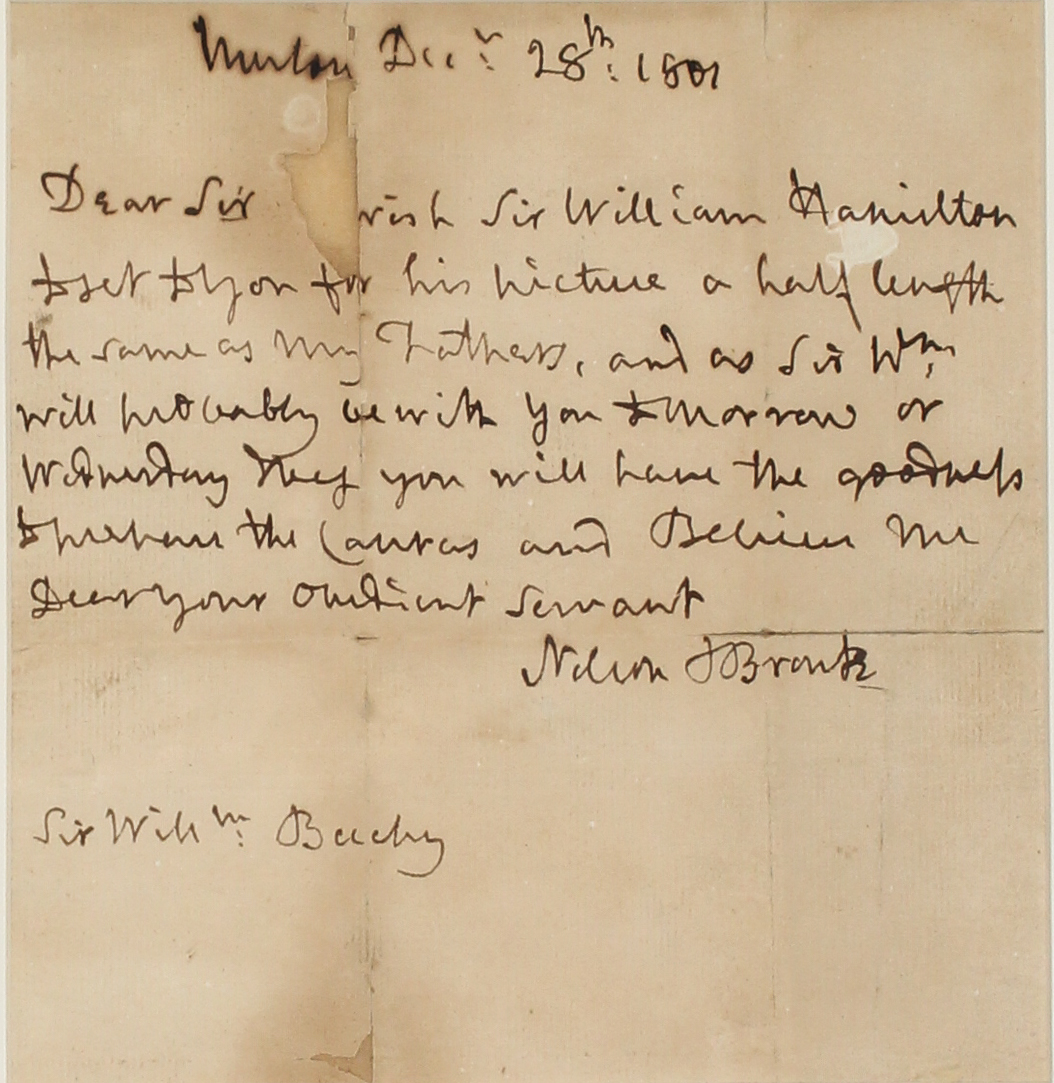 Merton Decr: 28th: 1801
Dear Sir   wish Sir William Hamilton
to set to You for his picture a half length
the same as My Fathers, and as Sir Wm:
will probably be with You tomorrow or
Wednesday   you will have the goodness
to prepare the Canvas and Believe Me
Dear your Obedient Servant
Nelson & Bronte
Sir Willm: Beechy